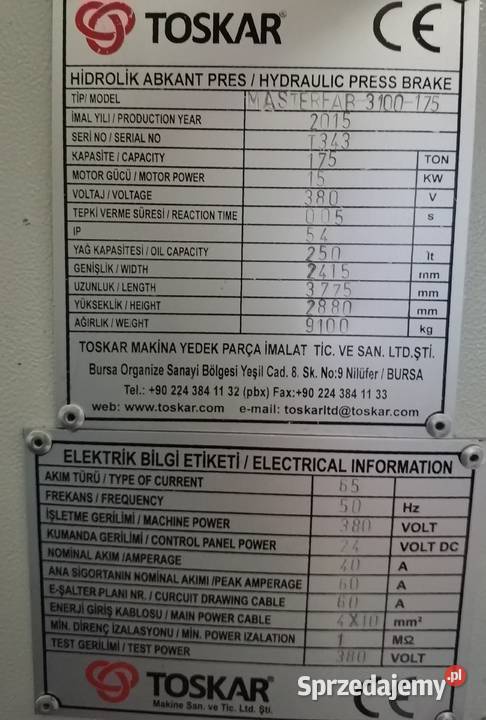 TOSKAR CE
HİDROLİK ABKANT PRES / HYDRAULIC PRESS BRAKE
TİP/ MODEL MASTERFAB-3100-175
İMAL YILI / PRODUCTION YEAR 2015
SERİ NO / SERIAL NO T343
KAPASİTE / CAPACITY 175 TON
MOTOR GÜCÜ / MOTOR POWER 15 KW
VOLTAJ / VOLTAGE 380 V
TEPKİ VERME SÜRESİ / REACTION TIME 0.05 s
IP 54
YAĞ KAPASİTESİ / OIL CAPACITY 250 lt
GENİŞLİK / WIDTH 2415 mm
UZUNLUK / LENGTH 3775 mm
YÜKSEKLİK / HEIGHT 2880 mm
AĞIRLIK / WEIGHT 9100 kg
TOSKAR MAKİNA YEDEK PARÇA İMALAT TİC. VE SAN. LTD.ŞTİ.
Bursa Organize Sanayi Bölgesi Yeşil Cad. 8. Sk. No:9 Nilüfer / BURSA
Tel.: +90 224 384 11 32 (pbx) Fax:+90 224 384 11 33
web: www.toskar.com e-mail: toskarltd@toskar.com
ELEKTRİK BİLGİ ETİKETİ / ELECTRICAL INFORMATION
AKIM TÜRÜ / TYPE OF CURRENT 65
FREKANS / FREQUENCY 50 Hz
İŞLETME GERİLİMİ / MACHINE POWER 380 VOLT
KUMANDA GERİLİMİ / CONTROL PANEL POWER 24 VOLT DC
NOMİNAL AKIM /AMPERAGE 40 A
ANA SİGORTANIN NOMİNAL AKIMI /PEAK AMPERAGE 60 A
E-ŞALTER PLANI NR. / CURCUIT DRAWING CABLE 60 A
ENERJİ GİRİŞ KABLOSU / MAIN POWER CABLE 4X10 mm²
MİN. DİRENÇ İZALASYONU / MİN. POWER IZALATION 1 MΩ
TEST GERİLİMİ / TEST POWER 380 VOLT
TOSKAR CE
Makine San. ve Tic. Ltd. Şti.
Sprzedajemy.pl